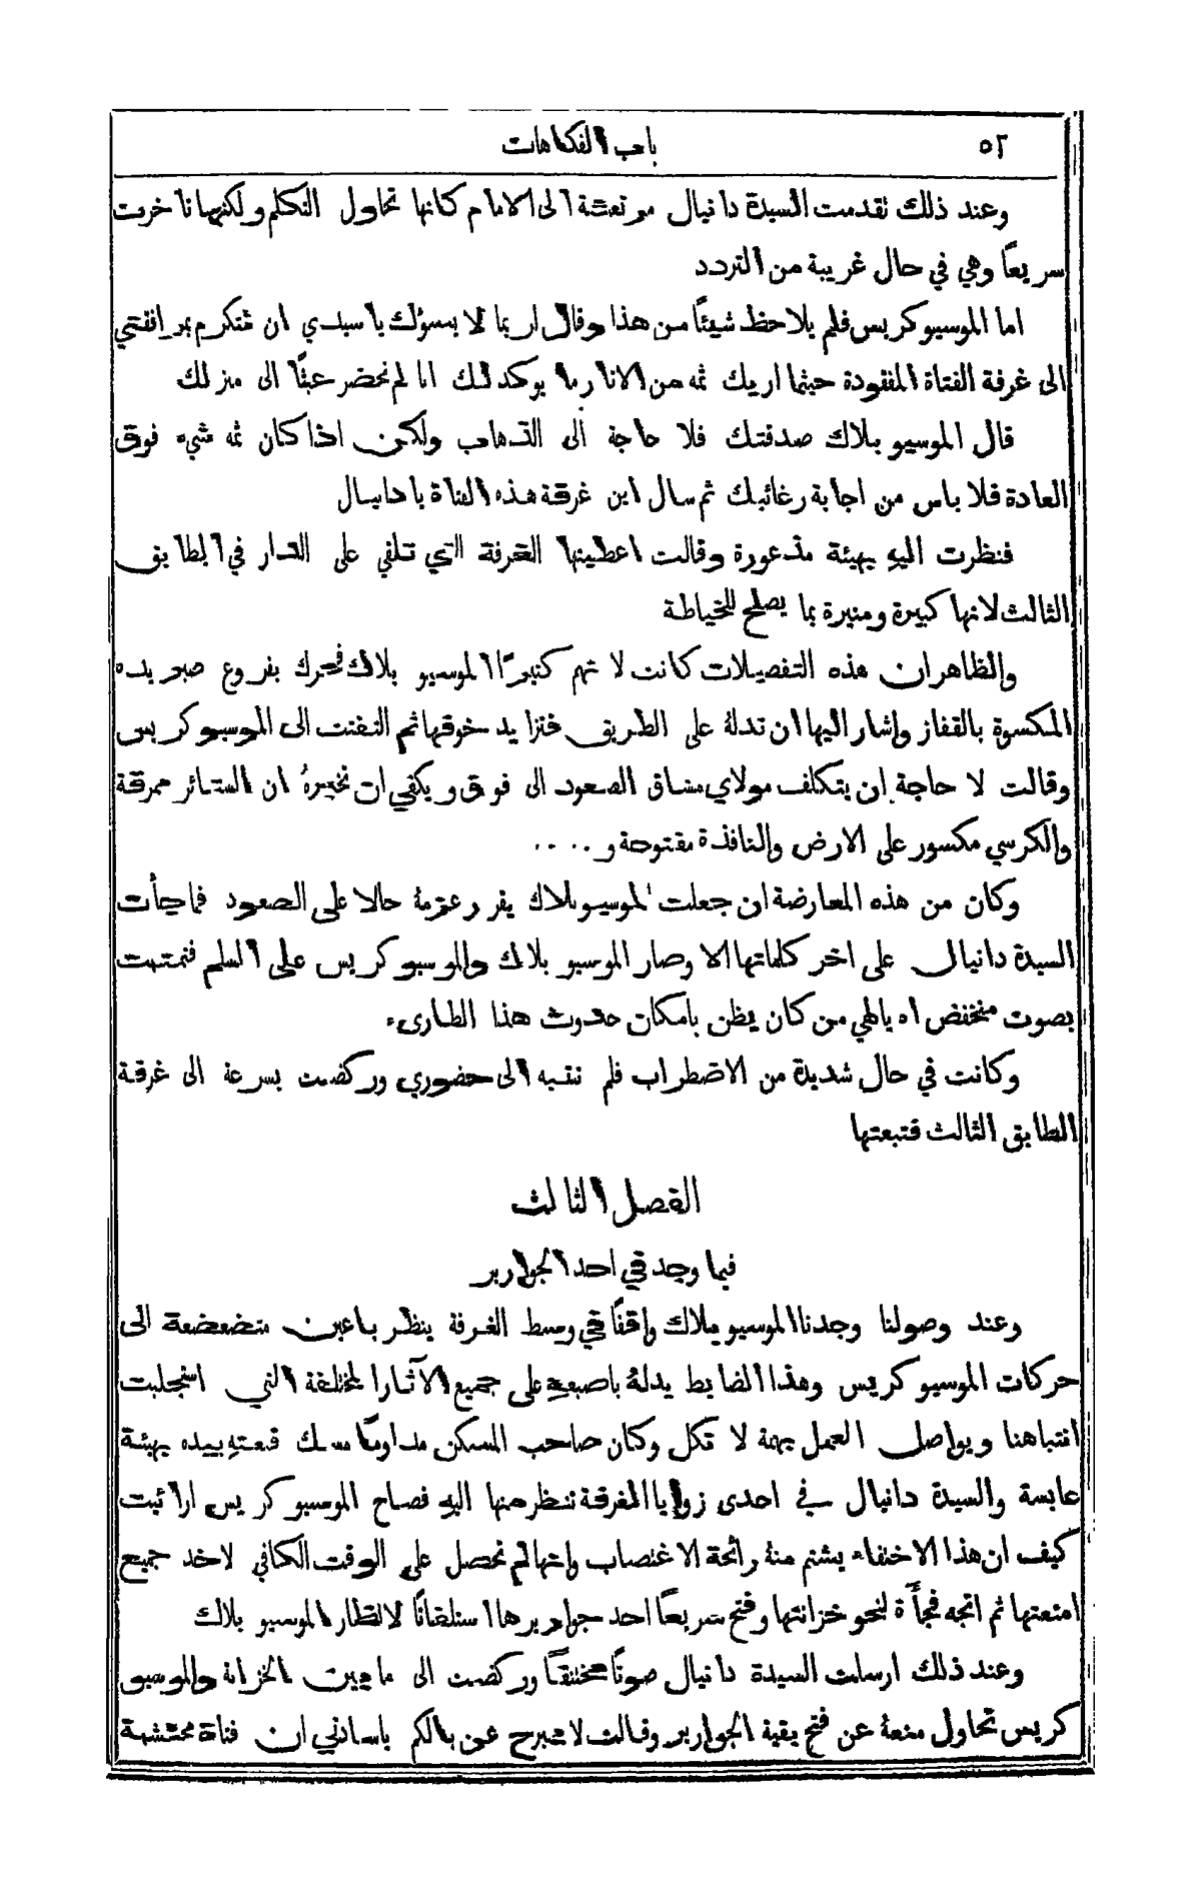 ٥٢
باب الفكاهات
وعند ذلك تقدمت السيدة دانيال مرتعشة الى الامام كانها تحاول التكلم ولكنها تاخرت
سريعًا وهي في حال غريبة من التردد
اما الموسيو كريس فلم يلاحظ شيئًا من هذا وقال ربما لا يسؤك يا سيدي ان تتكرم بمرافقتي
الى غرفة الفتاة المفقودة حيثما اريك ثمه من الاثار ما يوكد لك انا لم نحضر عبثًا الى منزلك
قال الموسيو بلاك صدقتك فلا حاجة الى الذهاب ولكن اذا كان ثمه شيء فوق
العادة فلا باس من اجابة رغائبك ثم سال اين غرفة هذه الفتاة يا دانيال
فنظرت اليهِ بهيئة مذعورة وقالت اعطيتها الغرفة التي تلي على الدار في الطابق
الثالث لانها كبيرة ومنيرة بما يصلح للخياطة
والظاهر ان هذه التفصيلات كانت لا تهم كثيرًا الموسيو بلاك فحرك بفروع صبر يده
المكسوة بالقفاز واشار اليها ان تدلهُ على الطريق فتزايد خوفها ثم التفتت الى الموسيو كريس
وقالت لا حاجة ان يتكلف مولاي مشاق الصعود الى فوق ويكفي ان نخبرهُ ان الستائر ممزقة
والكرسي مكسور على الارض والنافذة مفتوحة و....
وكان من هذه المعارضة ان جعلت الموسيو بلاك يقرر عزمهُ حالا على الصعود فما جأت
السيدة دانيال على اخر كلماتها الا وصار الموسيو بلاك والموسيو كريس على السلم فتمتمت
بصوت منخفض اه يالهي من كان يظن بامكان حدوث هذا الطارىء
وكانت في حال شديدة من الاضطراب فلم تنتبه الى حضوري وركضت بسرعة الى غرفة
الطابق الثالث فتبعتها
الفصل الثالث
فيما وجد في احد الجوارير
وعند وصولنا وجدنا الموسيو بلاك واقفًا في وسط الغرفة ينظر باعين متضعضعة الى
حركات الموسيو كريس وهذا الضابط يدلهُ باصبعهِ على جميع الآثار المختلفة التي استجلبت
انتباهنا ويواصل العمل بهمة لا تكل وكان صاحب المسكن مداومًا مسك قبعتهِ بيده بهيئة
عابسة والسيدة دانيال في احدى زوايا الغرفة تنظر منها اليهِ فصاح الموسيو كريس ارائيت
كيف ان هذا الاختفاء يشتم منهُ رائحة الاغتصاب وانها لم تحصل على الوقت الكافي لاخذ جميع
امتعتها ثم اتجه فجأَة لنحو خزانتها وفتح سريعًا احد جواريرها استلفاتًا لانظار الموسيو بلاك
وعند ذلك ارسلت السيدة دانيال صوتًا مختنقًا وركضت الى ما بين الخزانة والموسيو
كريس تحاول منعهُ عن فتح بقية الجوارير وقالت لا يبرح عن بالكم ياسادتي ان فتاة محتشمة